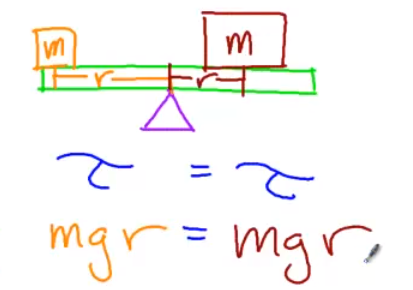 m m
r r
τ = τ
mgr = mgr